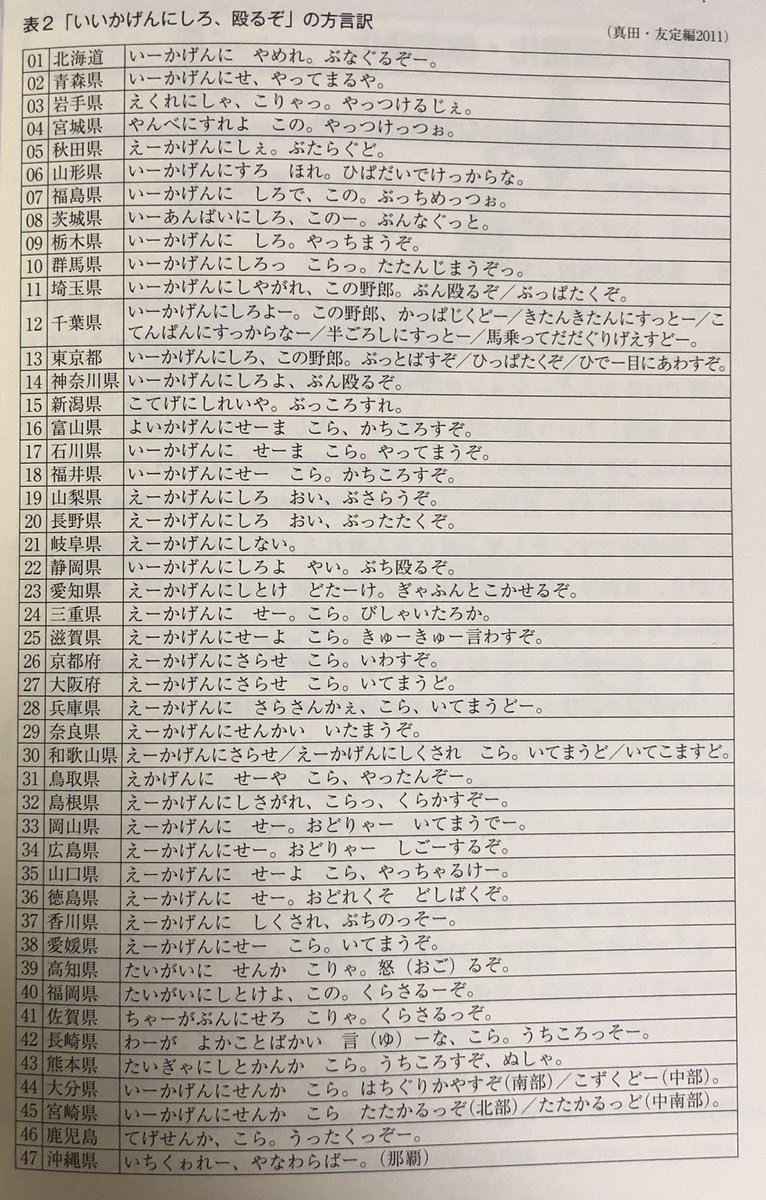 表2「いいかげんにしろ、殴るぞ」の方言訳
(真田・友定編2011)
01 北海道 いーかげんに　やめれ。ぶなぐるぞー。
02 青森県 いーかげんにせ、やってまるや。
03 岩手県 えくれにしゃ、こりゃっ。やっつけるじぇ。
04 宮城県 やんべにすれよ　この。やっつけっつぉ。
05 秋田県 えーかげんにしぇ。ぶたらぐど。
06 山形県 いーかげんにすろ　ほれ。ひぱだいでけっからな。
07 福島県 いーかげんに　しろで、この。ぶっちめっつぉ。
08 茨城県 いーあんばいにしろ、このー。ぶんなぐっと。
09 栃木県 いーかげんに　しろ。やっちまうぞ。
10 群馬県 いーかげんにしろっ　こらっ。たたんじまうぞっ。
11 埼玉県 いーかげんにしやがれ、この野郎。ぶん殴るぞ／ぶっぱたくぞ。
12 千葉県 いーかげんにしろよー。この野郎、かっぱじくどー／きたんきたんにすっとー／こ
てんぱんにすっからなー／半ごろしにすっとー／馬乗ってだだぐりげえすどー。
13 東京都 いーかげんにしろ、この野郎。ぶっとばすぞ／ひっぱたくぞ／ひでー目にあわすぞ。
14 神奈川県 いーかげんにしろよ、ぶん殴るぞ。
15 新潟県 こてげにしれいや。ぶっころすれ。
16 富山県 よいかげんにせーま　こら、かちころすぞ。
17 石川県 いーかげんに　せーま　こら。やってまうぞ。
18 福井県 いーかげんにせー　こら。かちころすぞ。
19 山梨県 えーかげんにしろ　おい、ぶさらうぞ。
20 長野県 えーかげんにしろ　おい、ぶったたくぞ。
21 岐阜県 えーかげんにしない。
22 静岡県 いーかげんにしろよ　やい。ぶち殴るぞ。
23 愛知県 えーかげんにしとけ　どたーけ。ぎゃふんとこかせるぞ。
24 三重県 えーかげんに　せー。こら。びしゃいたろか。
25 滋賀県 えーかげんにせーよ　こら。きゅーきゅー言わすぞ。
26 京都府 えーかげんにさらせ　こら。いわすぞ。
27 大阪府 えーかげんにさらせ　こら。いてまうど。
28 兵庫県 えーかげんに　さらさんかぇ、こら、いてまうどー。
29 奈良県 えーかげんにせんかい　いたまうぞ。
30 和歌山県 えーかげんにさらせ／えーかげんにしくされ　こら。いてまうど／いてこますど。
31 鳥取県 えかげんに　せーや　こら、やったんぞー。
32 島根県 えーかげんにしさがれ、こらっ、くらかすぞー。
33 岡山県 えーかげんに　せー。おどりゃー　いてまうでー。
34 広島県 えーかげんにせー。おどりゃー　しごーするぞ。
35 山口県 えーかげんに　せーよ　こら、やっちゃるけー。
36 徳島県 えーかげんに　せー。おどれくそ　どしばくぞ。
37 香川県 えーかげんに　しくされ、ぶちのっそー。
38 愛媛県 えーかげんにせー　こら。いてまうぞ。
39 高知県 たいがいに　せんか　こりゃ。怒（おご）るぞ。
40 福岡県 たいがいにしとけよ、この。くらさるーぞ。
41 佐賀県 ちゃーがぶんにせろ　こりゃ。くらさるっぞ。
42 長崎県 わーが　よかことばかい　言（ゆ）ーな、こら。うちころっそー。
43 熊本県 たいぎゃにしとかんか　こら。うちころすぞ、ぬしゃ。
44 大分県 いーかげんにせんか　こら。はちぐりかやすぞ(南部)／こずくどー(中部)。
45 宮崎県 いーかげんにせんか　こら　たたかるっぞ(北部)／たたかるっど(中南部)。
46 鹿児島 てげせんか、こら。うったくっぞー。
47 沖縄県 いちくゎれー、やなわらばー。(那覇)